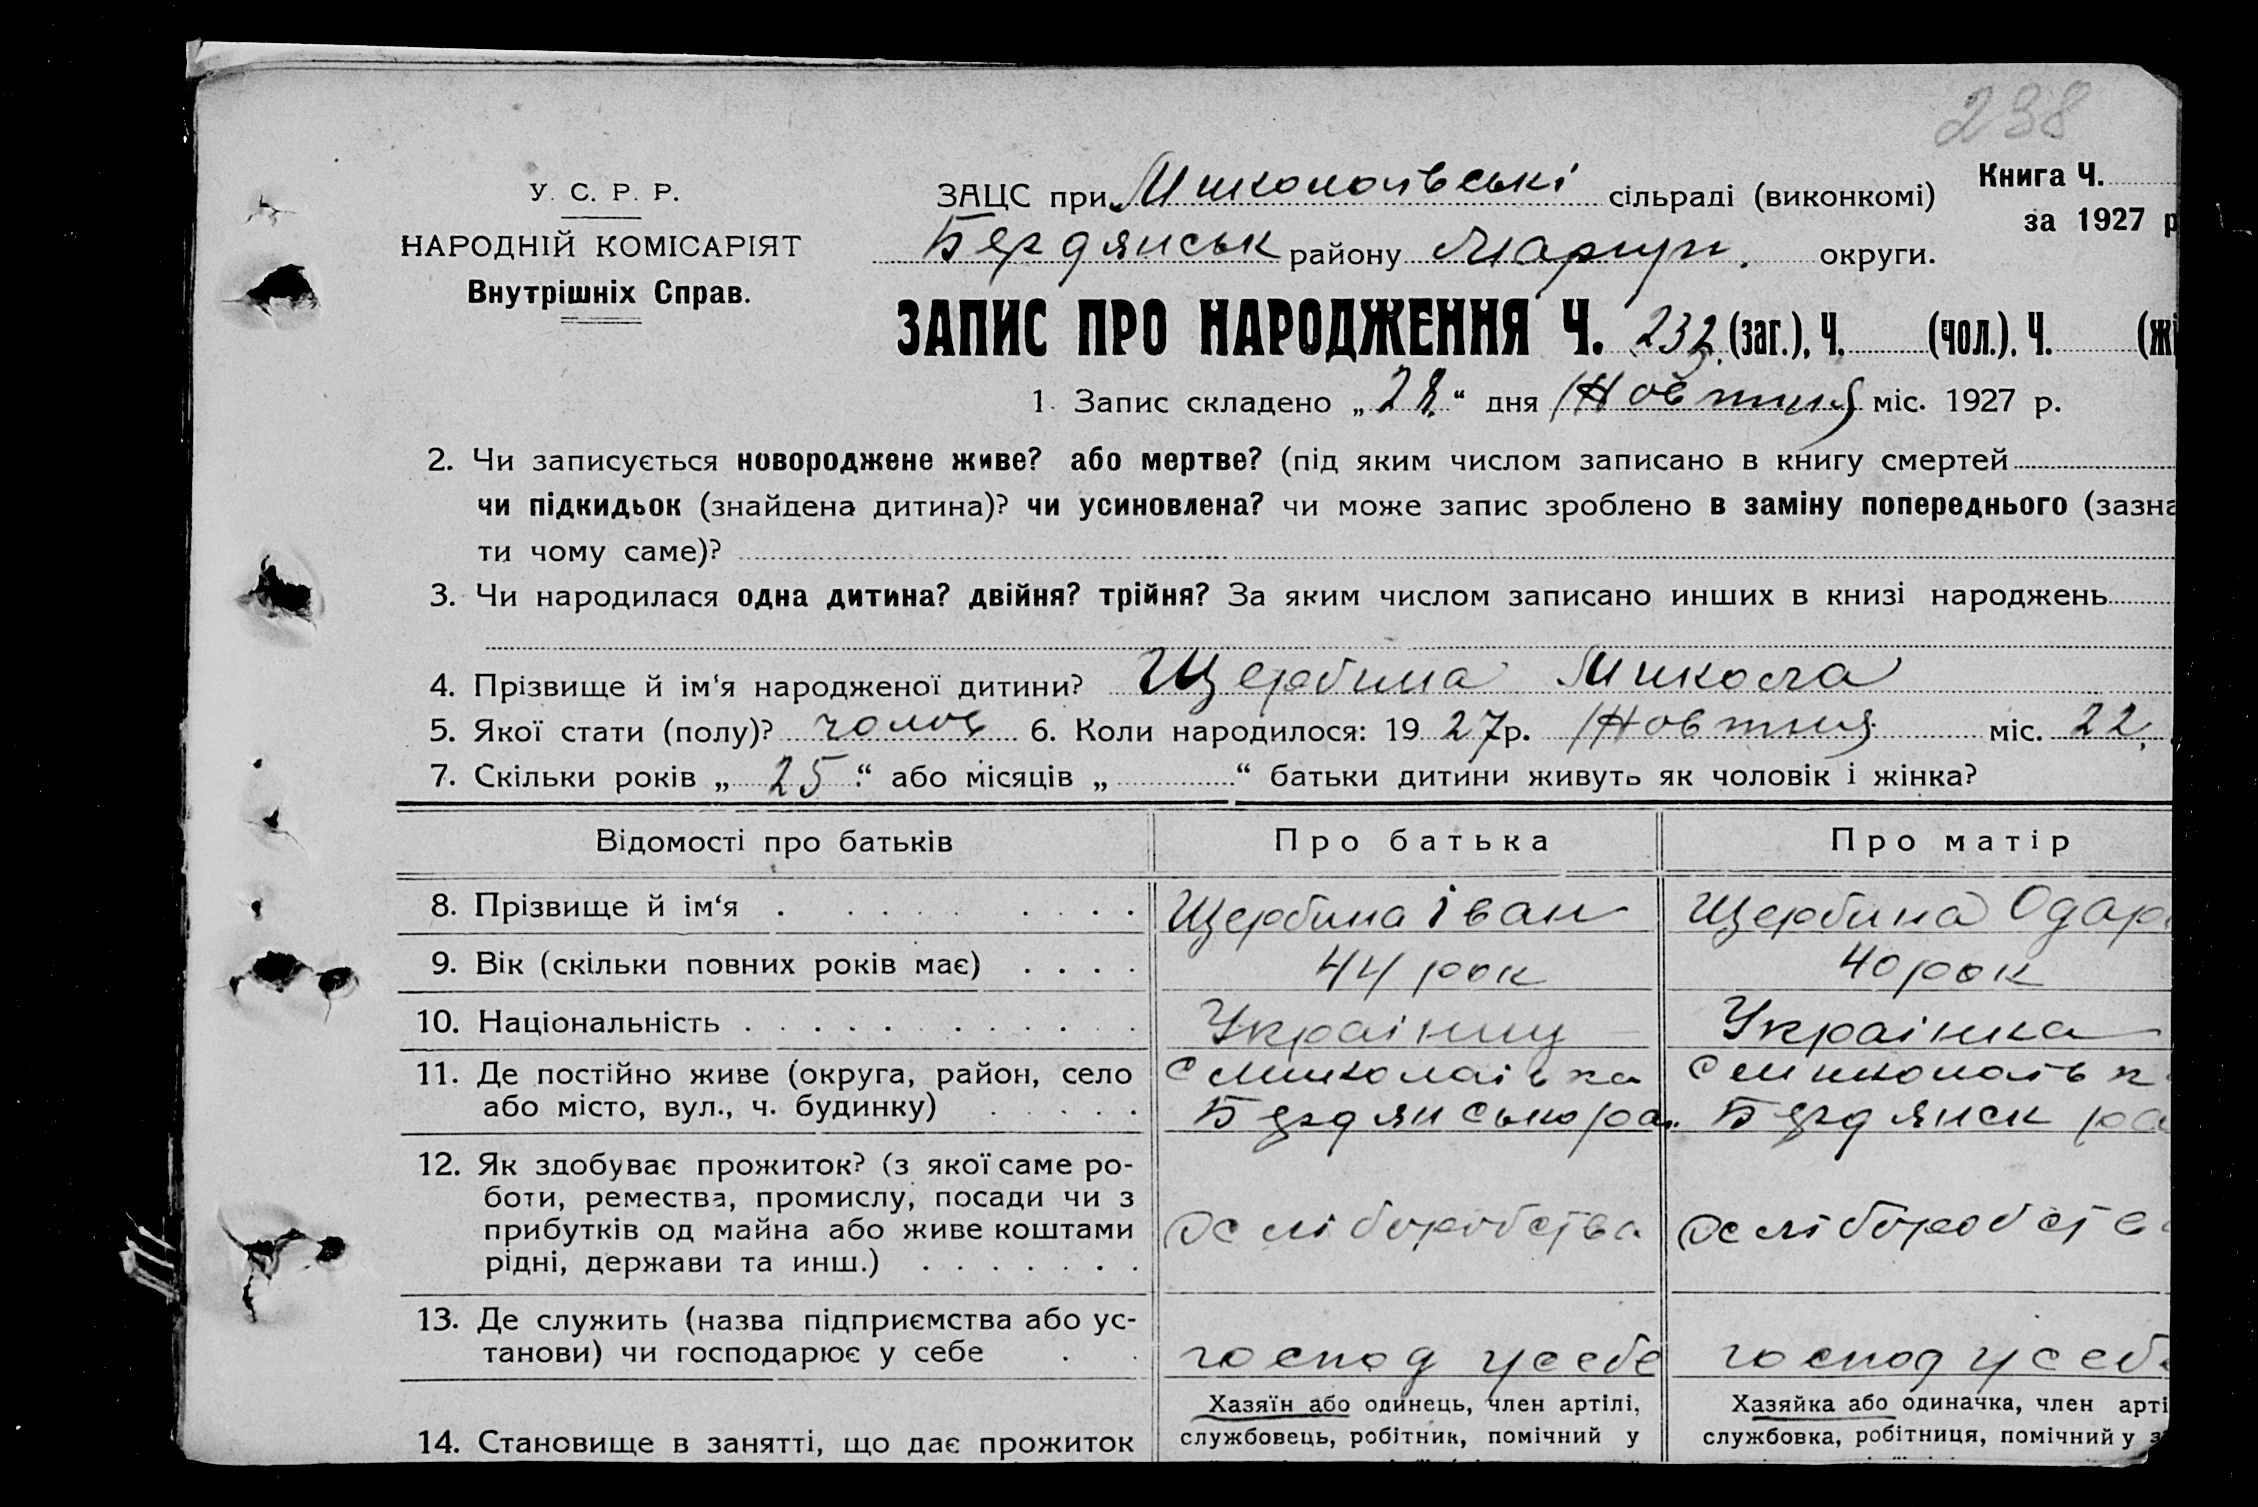 238
У. С. Р. Р.
НАРОДНІЙ КОМІСАРІЯТ
Внутрішніх Справ.
ЗАЦС при Миколаївські сільраді (виконкомі)
Бердянськ району Маріуп. округи.
Книга Ч.
за 1927 р
ЗАПИС ПРО НАРОДЖЕННЯ Ч. 232 (заг.), Ч. (чол.). Ч. (жі
1. Запис складено „28“ дня Жовтня міс. 1927 р.
2. Чи записується новороджене живе? або мертве? (під яким числом записано в книгу смертей
чи підкидьок (знайдена дитина)? чи усиновлена? чи може запис зроблено в заміну попереднього (зазна
ти чому саме)?
3. Чи народилася одна дитина? двійня? трійня? За яким числом записано инших в книзі народжень
4. Прізвище й ім‘я народженої дитини? Щербина Микола
5. Якої стати (полу)? чолов 6. Коли народилося: 1927 р. Жовтня міс. 22.
7. Скільки років „25“ або місяців „ “ батьки дитини живуть як чоловік і жінка?
Відомості про батьків Про батька Про матір
8. Прізвище й ім‘я Щербина Іван Щербина Одар
9. Вік (скільки повних років має) 44 рок 40 рок
10. Національність Украінец Украінка
11. Де постійно живе (округа, район, село
або місто, вул., ч. будинку)
с Миколаівка
Бердянсько ра.
с Миколаівк
Бердянськ ра
12. Як здобуває прожиток? (з якої саме ро-
боти, ремества, промислу, посади чи з
прибутків од майна або живе коштами
рідні, держави та инш.)
хліборобства
хлібороства
13. Де служить (назва підприємства або ус-
танови) чи господарює у себе
господ усебе
господ у себ
14. Становище в занятті, що дає прожиток
Хазяїн або одинець, член артілі,
службовець, робітник, помічний у
Хазяйка або одиначка, член арті
службовка, робітниця, помічний у з